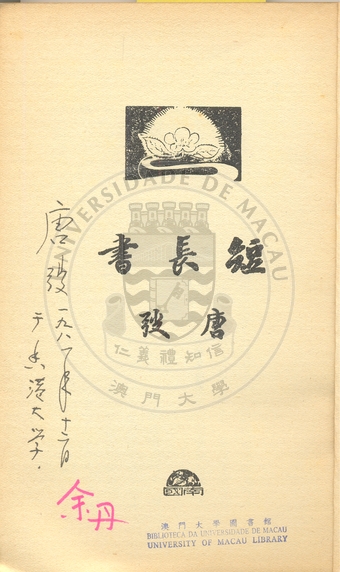 UNIVERSIDADE DE MACAU
短長書
唐弢
仁義禮知信
澳門大學
唐弢 一九八一年十二月
于香港大学.
余丹
南國
澳門大學圖書館
BIBLIOTECA DA UNIVERSIDADE DE MACAU
UNIVERSITY OF MACAU LIBRARY